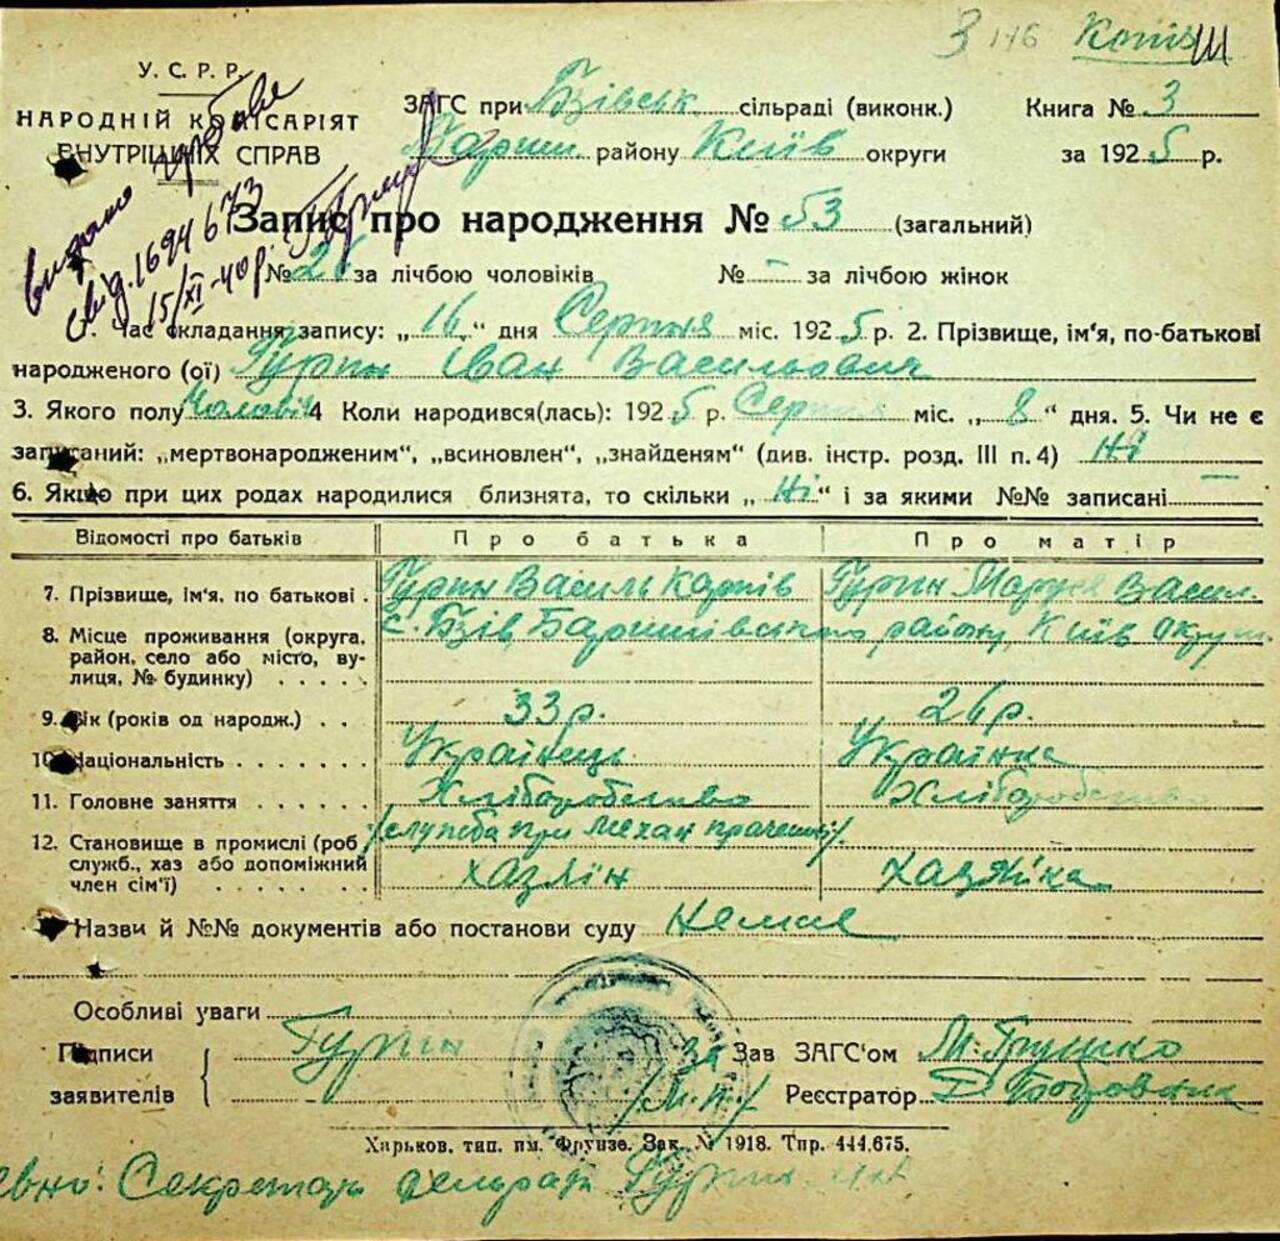 3 146 Копія
У. С. Р. Р.
НАРОДНІЙ КОМІСАРІЯТ
ВНУТРІШНІХ СПРАВ
ЗАГС при Бзівськ сільраді (виконк.) Книга № 3
Бариш. району Київ округи за 1925 р.
видано
свід. 1694673
15/XI-40р.
Запис про народження № 53 (загальний)
№ 26 за лічбою чоловіків № - за лічбою жінок
1. Час складання запису: „16“ дня Серпня міс. 1925 р. 2. Прізвище, ім'я, по-батькові
народженого (ої) Гурин Іван Васильович
3. Якого полу Чоловіч 4 Коли народився(лась): 1925 р. Серпня міс. „8“ дня. 5. Чи не є
записаний: „мертвонародженим“, „всиновлен“, „знайденям“ (див. інстр. розд. III п. 4) Ні
6. Якщо при цих родах народилися близнята, то скільки „Ні“ і за якими №№ записані —
Відомості про батьків Про батька Про матір
7. Прізвище, ім'я, по батькові . Гурин Василь Карпів Гурин Маруся Васил.
8. Місце проживання (округа, район, село або місто, вулиця, № будинку) . . . . . с. Бзів, Баришівського району, Київ округи
9. Вік (років од народж.) . . 33 р. 26 р.
10. Національність . . . . . . . Українець Українка
11. Головне заняття . . . . . . Хліборобство Хліборобство
/служба при механ
12. Становище в промислі (роб служб., хаз або допоміжний член сім'ї) . . . . . . Хазяїн Хазяйка
Назви й №№ документів або постанови суду Немає
Особливі уваги
Підписи заявителів { Гурин За Зав ЗАГС'ом М. Грушко
/М.П./ Реєстратор Д.
Харьков, тип. им. Фрунзе. Зак. № 1918. Тир. 444.675.
евно: Секретар сельради Гурин